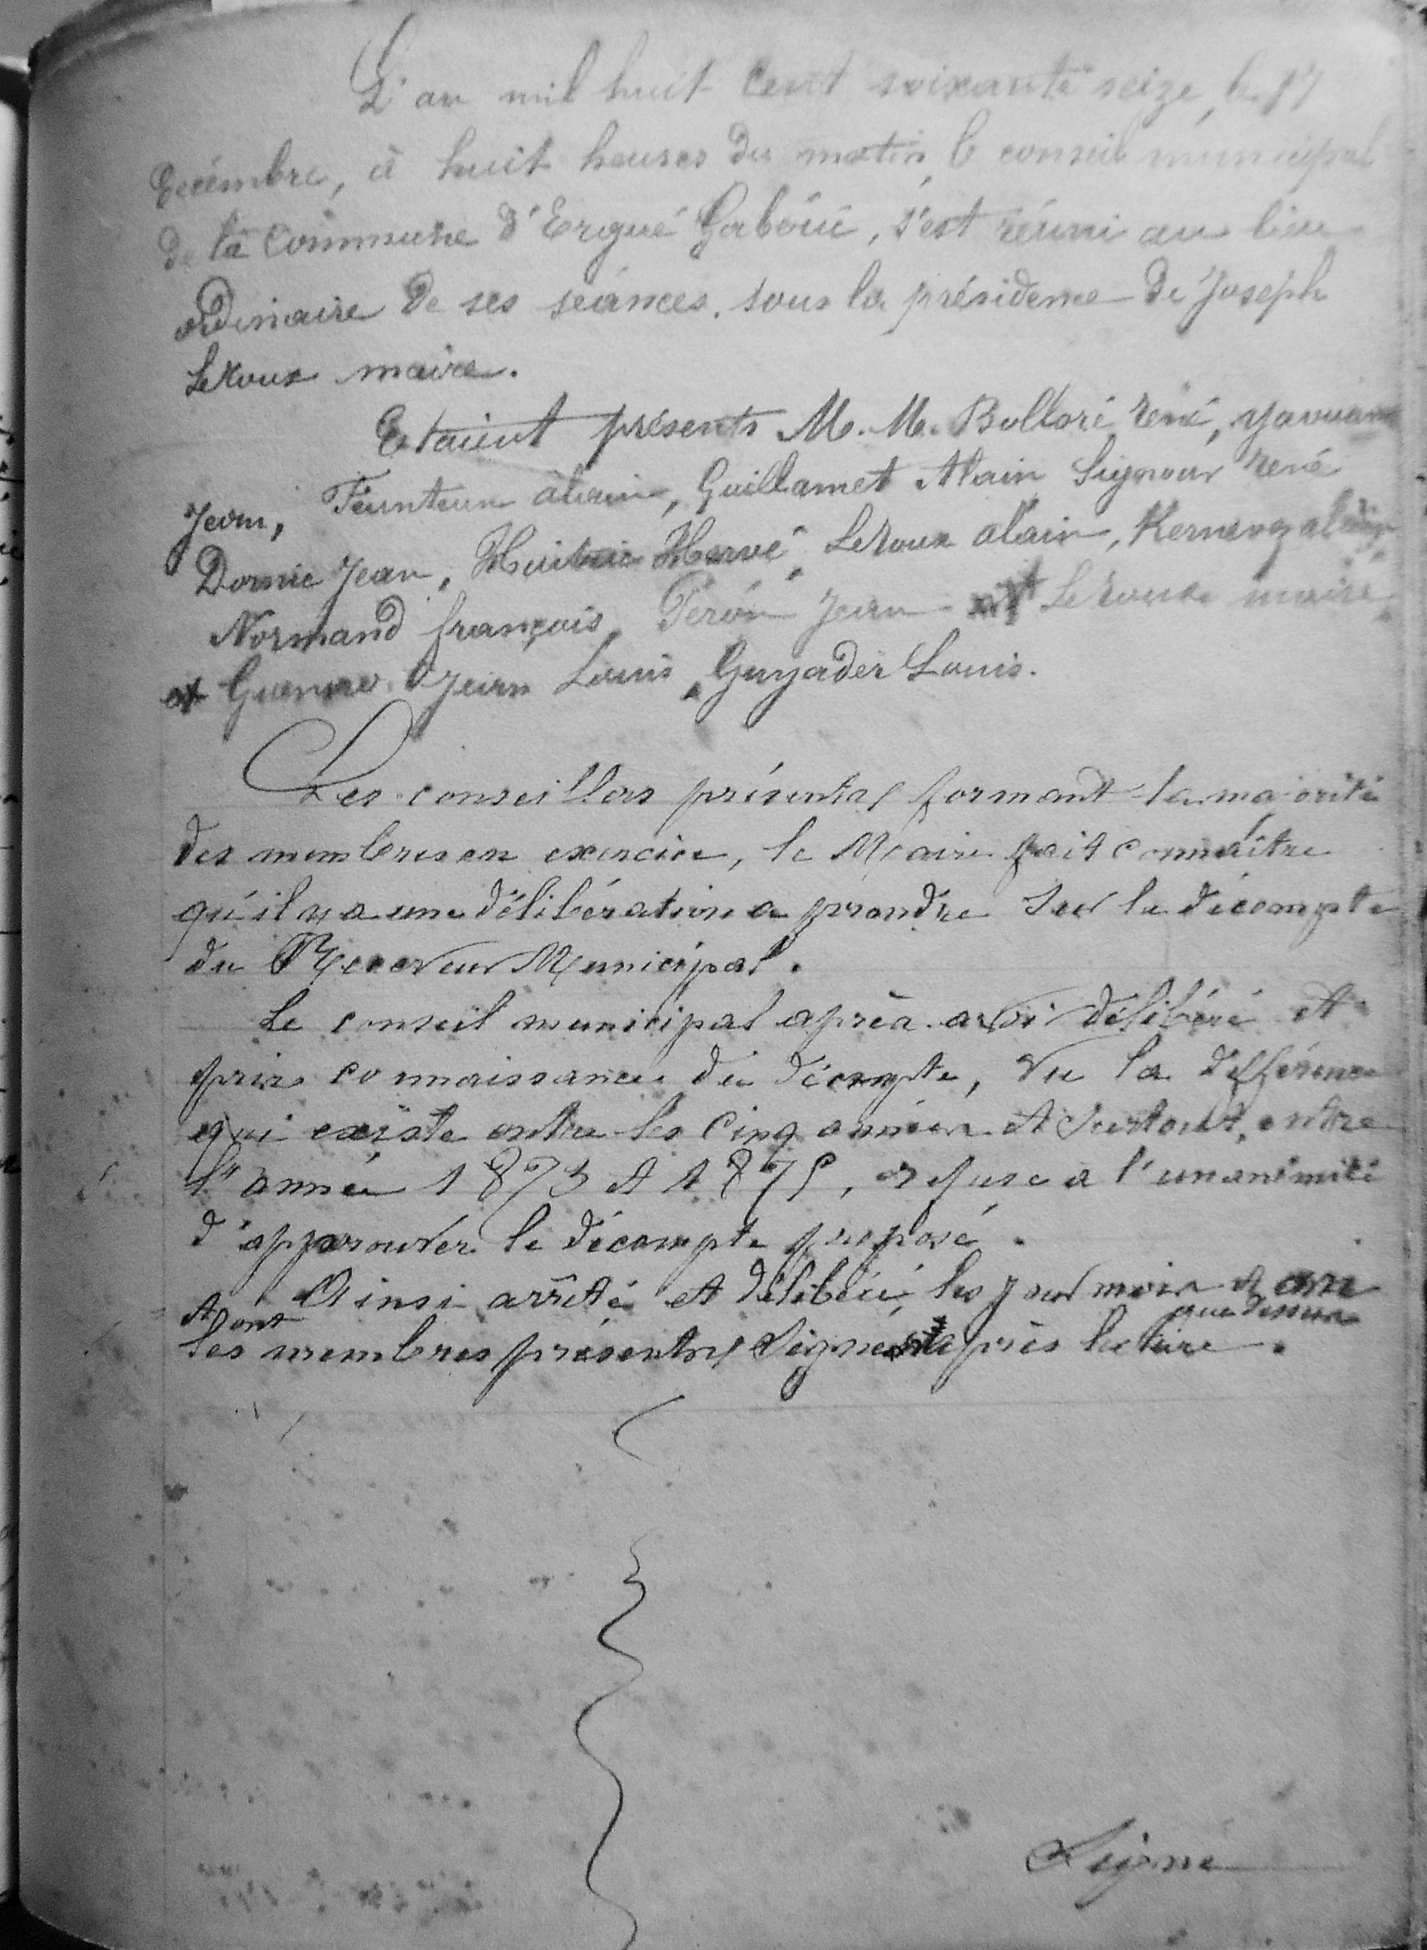 L'an mil huit cent soixante seize, le 17
Décembre, à huit heures du matin, le conseil municipal
de la commune d'Ergué Gabéric, s'est réuni au lieu
ordinaire de ses séances, sous la présidence de Joseph
Leroux maire.
Etaient présents M. M. Bolloré René,
Jean, Feunteun alain, Guillamet Alain Signour René
Jean, Huitric Hervé, Leroux alain,
Normand françois, Jean Leroux maire
et Jean Louis, Guyader Louis.
Les conseillers présents formant la majorité
des membres en exercice, le Maire fait connaître
qu'il y a une délibération a prendre sur le décompte
du Receveur Municipal.
Le conseil municipal après avoir délibéré et
pris connaissance du décompte, vu la différence
qui existe entre les cinq années et surtout, entre
l'année 1873 et 1875, refuse a l'unanimité
d'approuver le décompte proposé.
Ainsi arrêté et délibéré, les jour mois et an
que dessus
et ont
les membres présents signé après lecture.
Signé